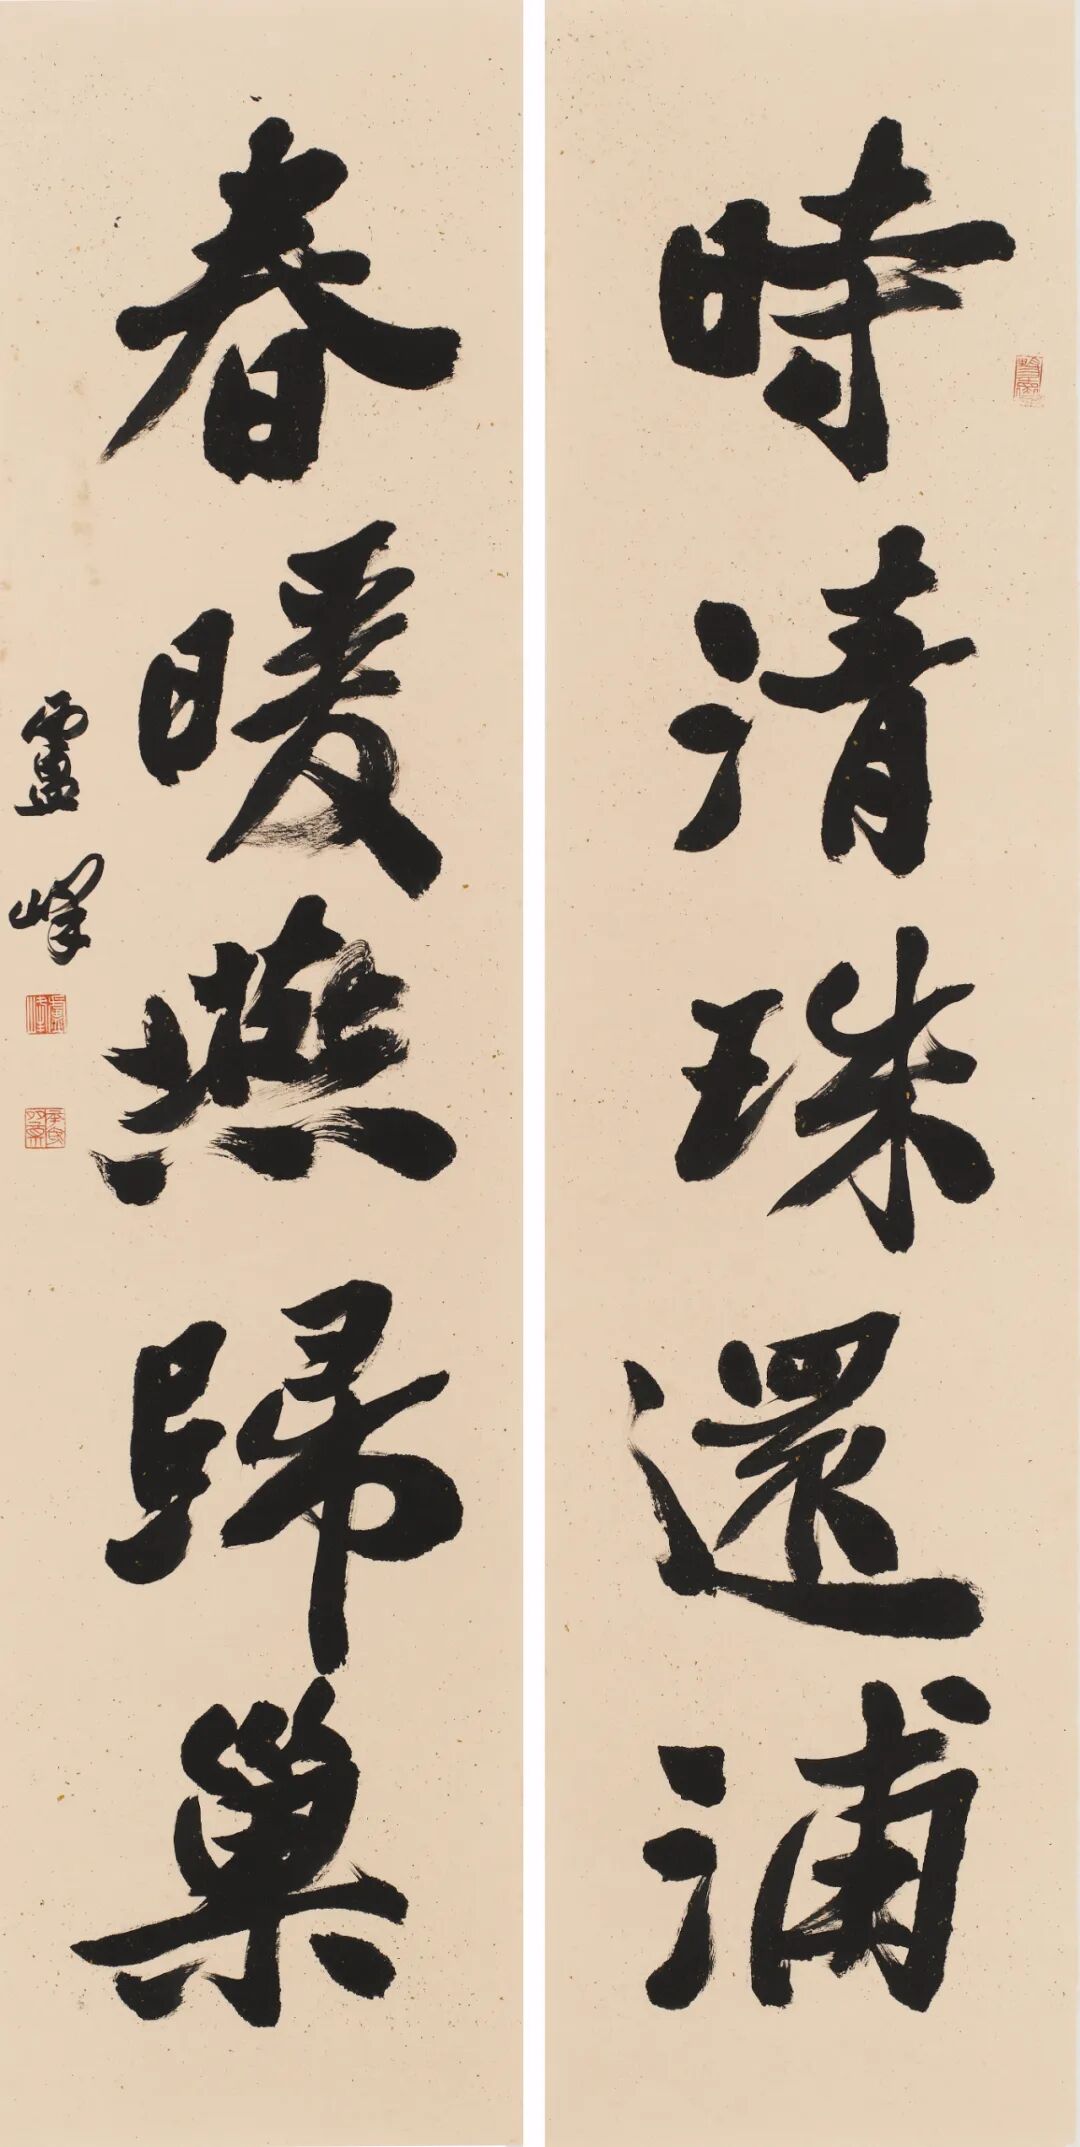 時清珠還浦
春暖燕歸巢
盧峰